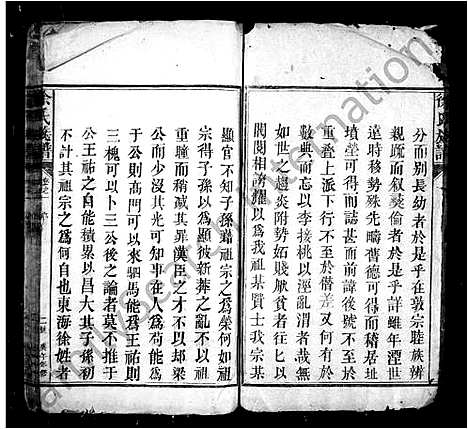 徐氏族譜
分而別長幼者於是乎在敦宗睦族辨
親疏而叙彞倫者於是乎詳雖年湮世
遠時移勢殊先疇舊德可得而稽居址
墳塋可得而誌甚而前有所諱後有所
重登上派下行不至於僭差又何有於
數典而忘以李接桃以涇亂渭者哉無
如世之趨炎附勢妬賤厭貧者往匕以
閥閱相誇耀以為我祖基賢士我宗基
顯官不知子孫籍祖宗之為榮何如祖
宗得子孫以為顯彼新莽之亂不以祖
重瞳而稍减其罪漢臣之才不以邽梁
公而少沒其光可知事在人為苟能為
于公則高門可以來駟馬能為王祐則
三槐可以卜三公後之論者莫不推于
公王祐之自能積累以昌大其子孫初
不計其祖宗之為何自也東海徐姓者
徐氏族譜